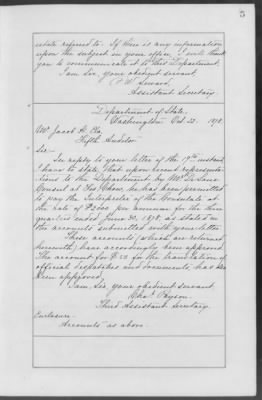 5
estate referred to. If there is any information
upon the subject in your office, I will thank
you to communicate it to this Department.
I am, Sir, your obedient servant,
F. W. Seward,
Assistant Secretary
Department of State,
Washington, Oct. 23. 1878.
Jacob H. Ela,
Fifth Auditor
Sir:
In reply to your letter of the 17th instant
I have to state, that upon recent representa-
tions to the Department by Mr. De Lano
Consul at Foo Chow, he has been permitted
to pay the Interpreter of the Consulate at
the rate of $2000 per annum for the
quarter ended June 30, 1878, as stated in
the accounts submitted with your letter.
These accounts (which are returned
herewith) have accordingly been approved.
The account for $20 for the translation of
official despatches and documents, has
been approved.
I am, Sir, your obedient servant,
Chas. Payson.
Third Assistant Secretary
Enclosure.
Accounts as above.